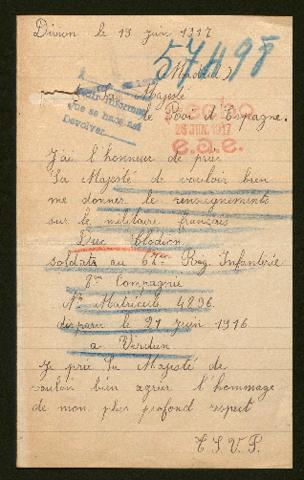 Divion le 13 juin 1917
57498
(Madrid)
Sa Majesté
le Roi d'Espagne.
que se hace así
Devolver
26 JUN. 1917
e.a.e.
J'ai l'honneur de prier
Sa Majesté de vouloir bien
me donner le renseignements
sur le militaire français
Duc Clodion
soldat au 67em Reg. Infanterie
8em Compagnie
No Matricule 4896
disparu le 21 juin 1916
a Verdun
Je prie Sa Majesté de
vouloir bien agréer l'hommage
de mon plus profond respect
T.S.V.P.